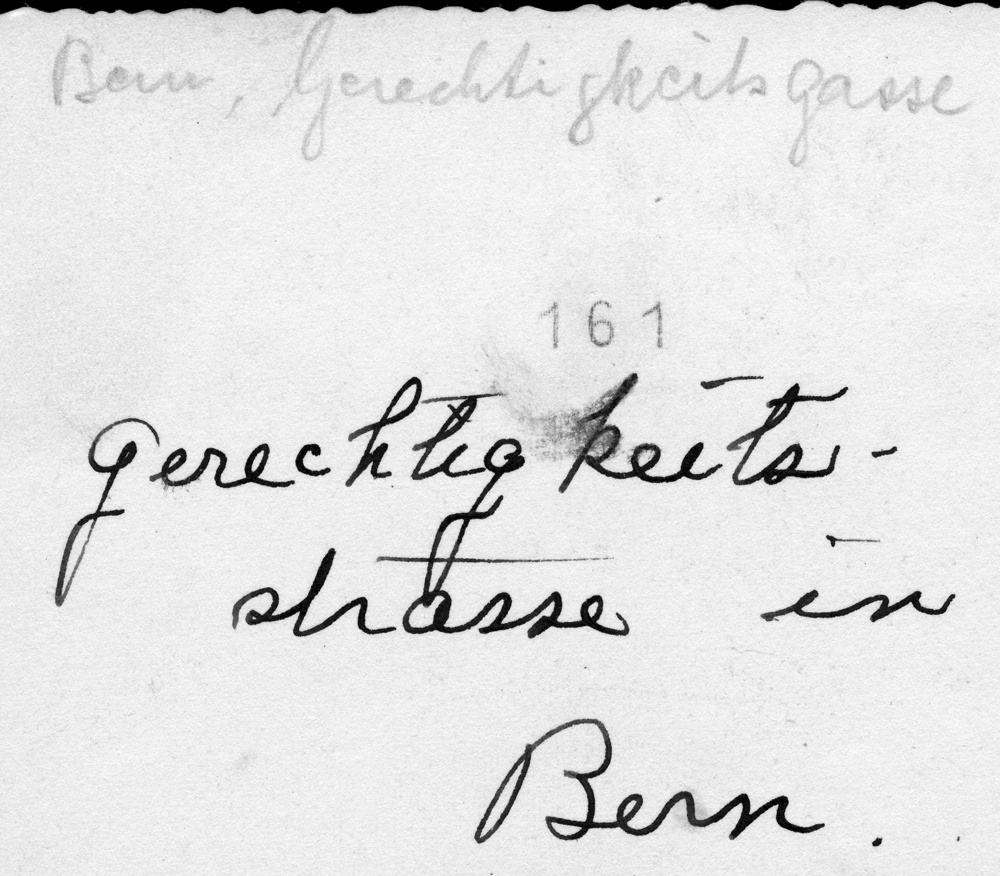 Bern, Gerechtigkeitsgasse
161
Gerechtigkeits-
strasse in
Bern.